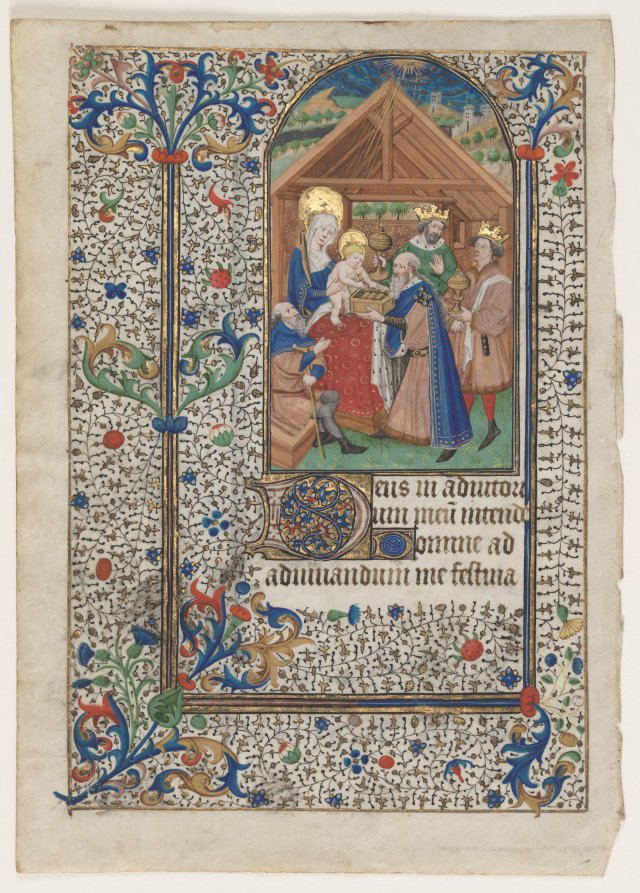 Deus in adiutori
um meū intende
Domine ad
adiuuandum me festina